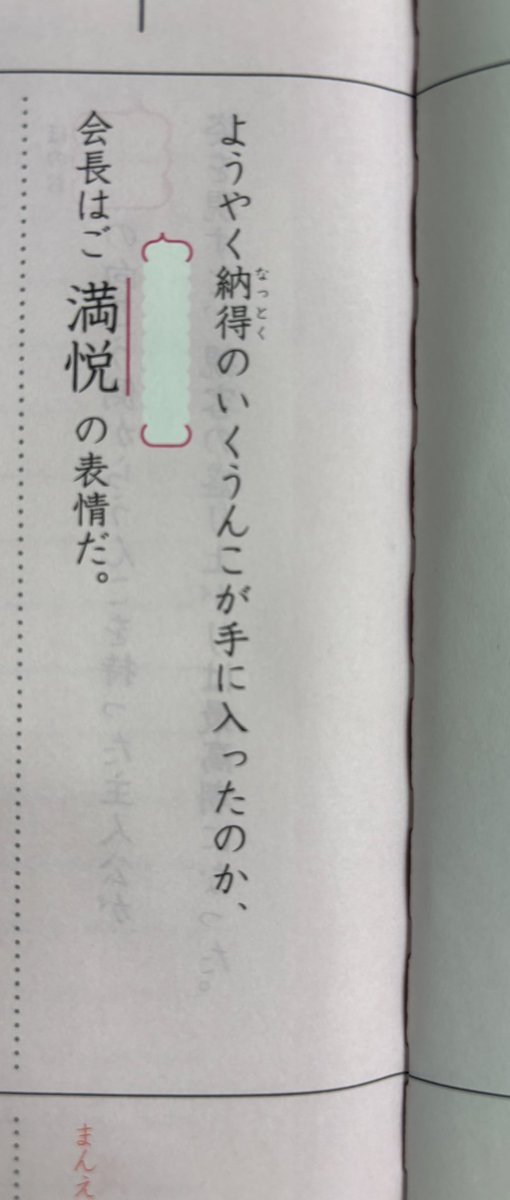 ようやく納得のいくうんこが手に入ったのか、
なっとく
会長はご満悦の表情だ。
まんえ